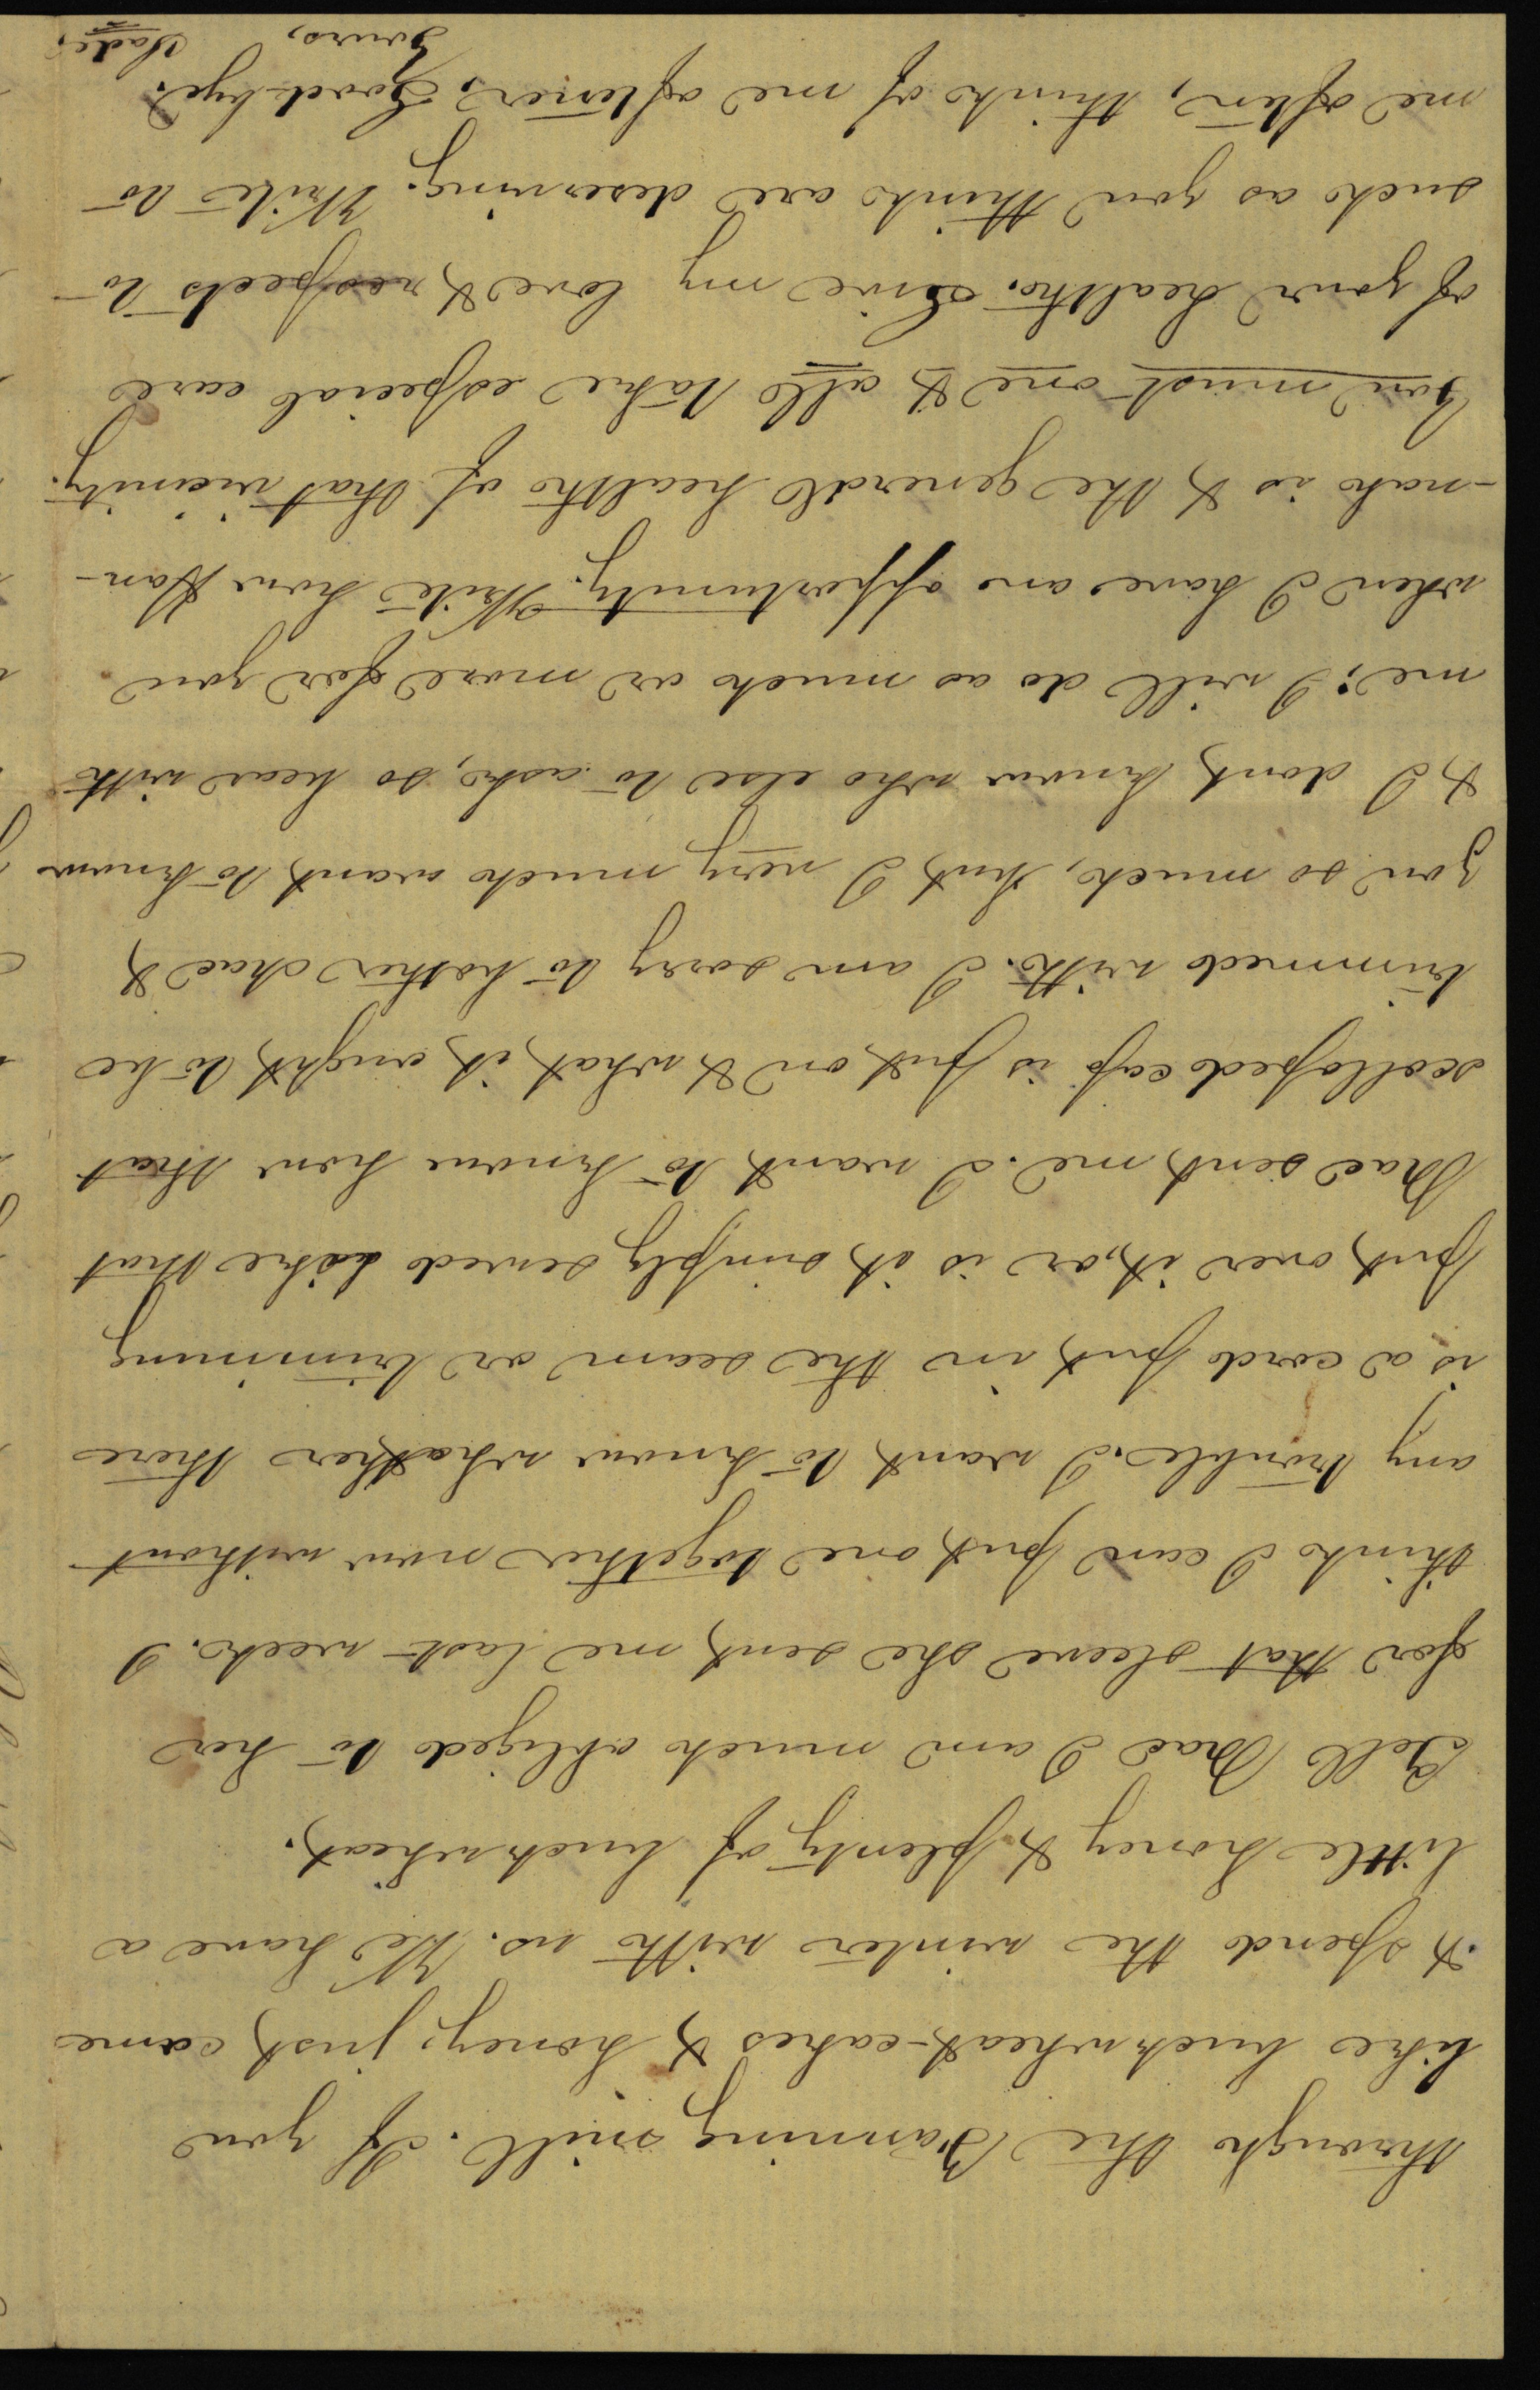 through the Fanning mill. If you
likes buckwheat-cakes & honey, just come
& spend the winter with us. We have a
little honey & plenty of buckwheat.
Tell Mac I am much obliged to her
for that sleeve she sent me last week. I
think I can put one together now without
any trouble. I want to know whather there
is a cord put in the seam or trimming
put over it, or is it simply sewed like that
Mac sent me. I want to know how that
scolloped cap is put on & what it ought to be
trimmed with. I am sorry to bother Mac &
you so much, but I very much want to know
& I dont know who else to ask, so bear with
me; I will do as much or more for you
when I have an opportunity. Write how Han-
-nah is & the general health of that vicinity.
You must one & all take especial care
of your health. Give my love & respects to
such as you think are deserving. Write to
me often, think of me oftener. Good-bye.
Yours, Sade.